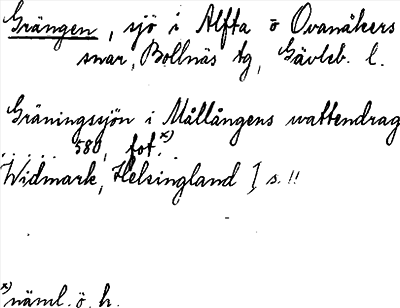 Grängen, sjö i Alfta o Ovanåkers
snar, Bollnäs tg, Gävleb. l.
Gräningssjön i Mållångens wattendrag
. . . . . 580, fot. x)
Widmark, Helsingland I s. 11
x) näml. ö. h.